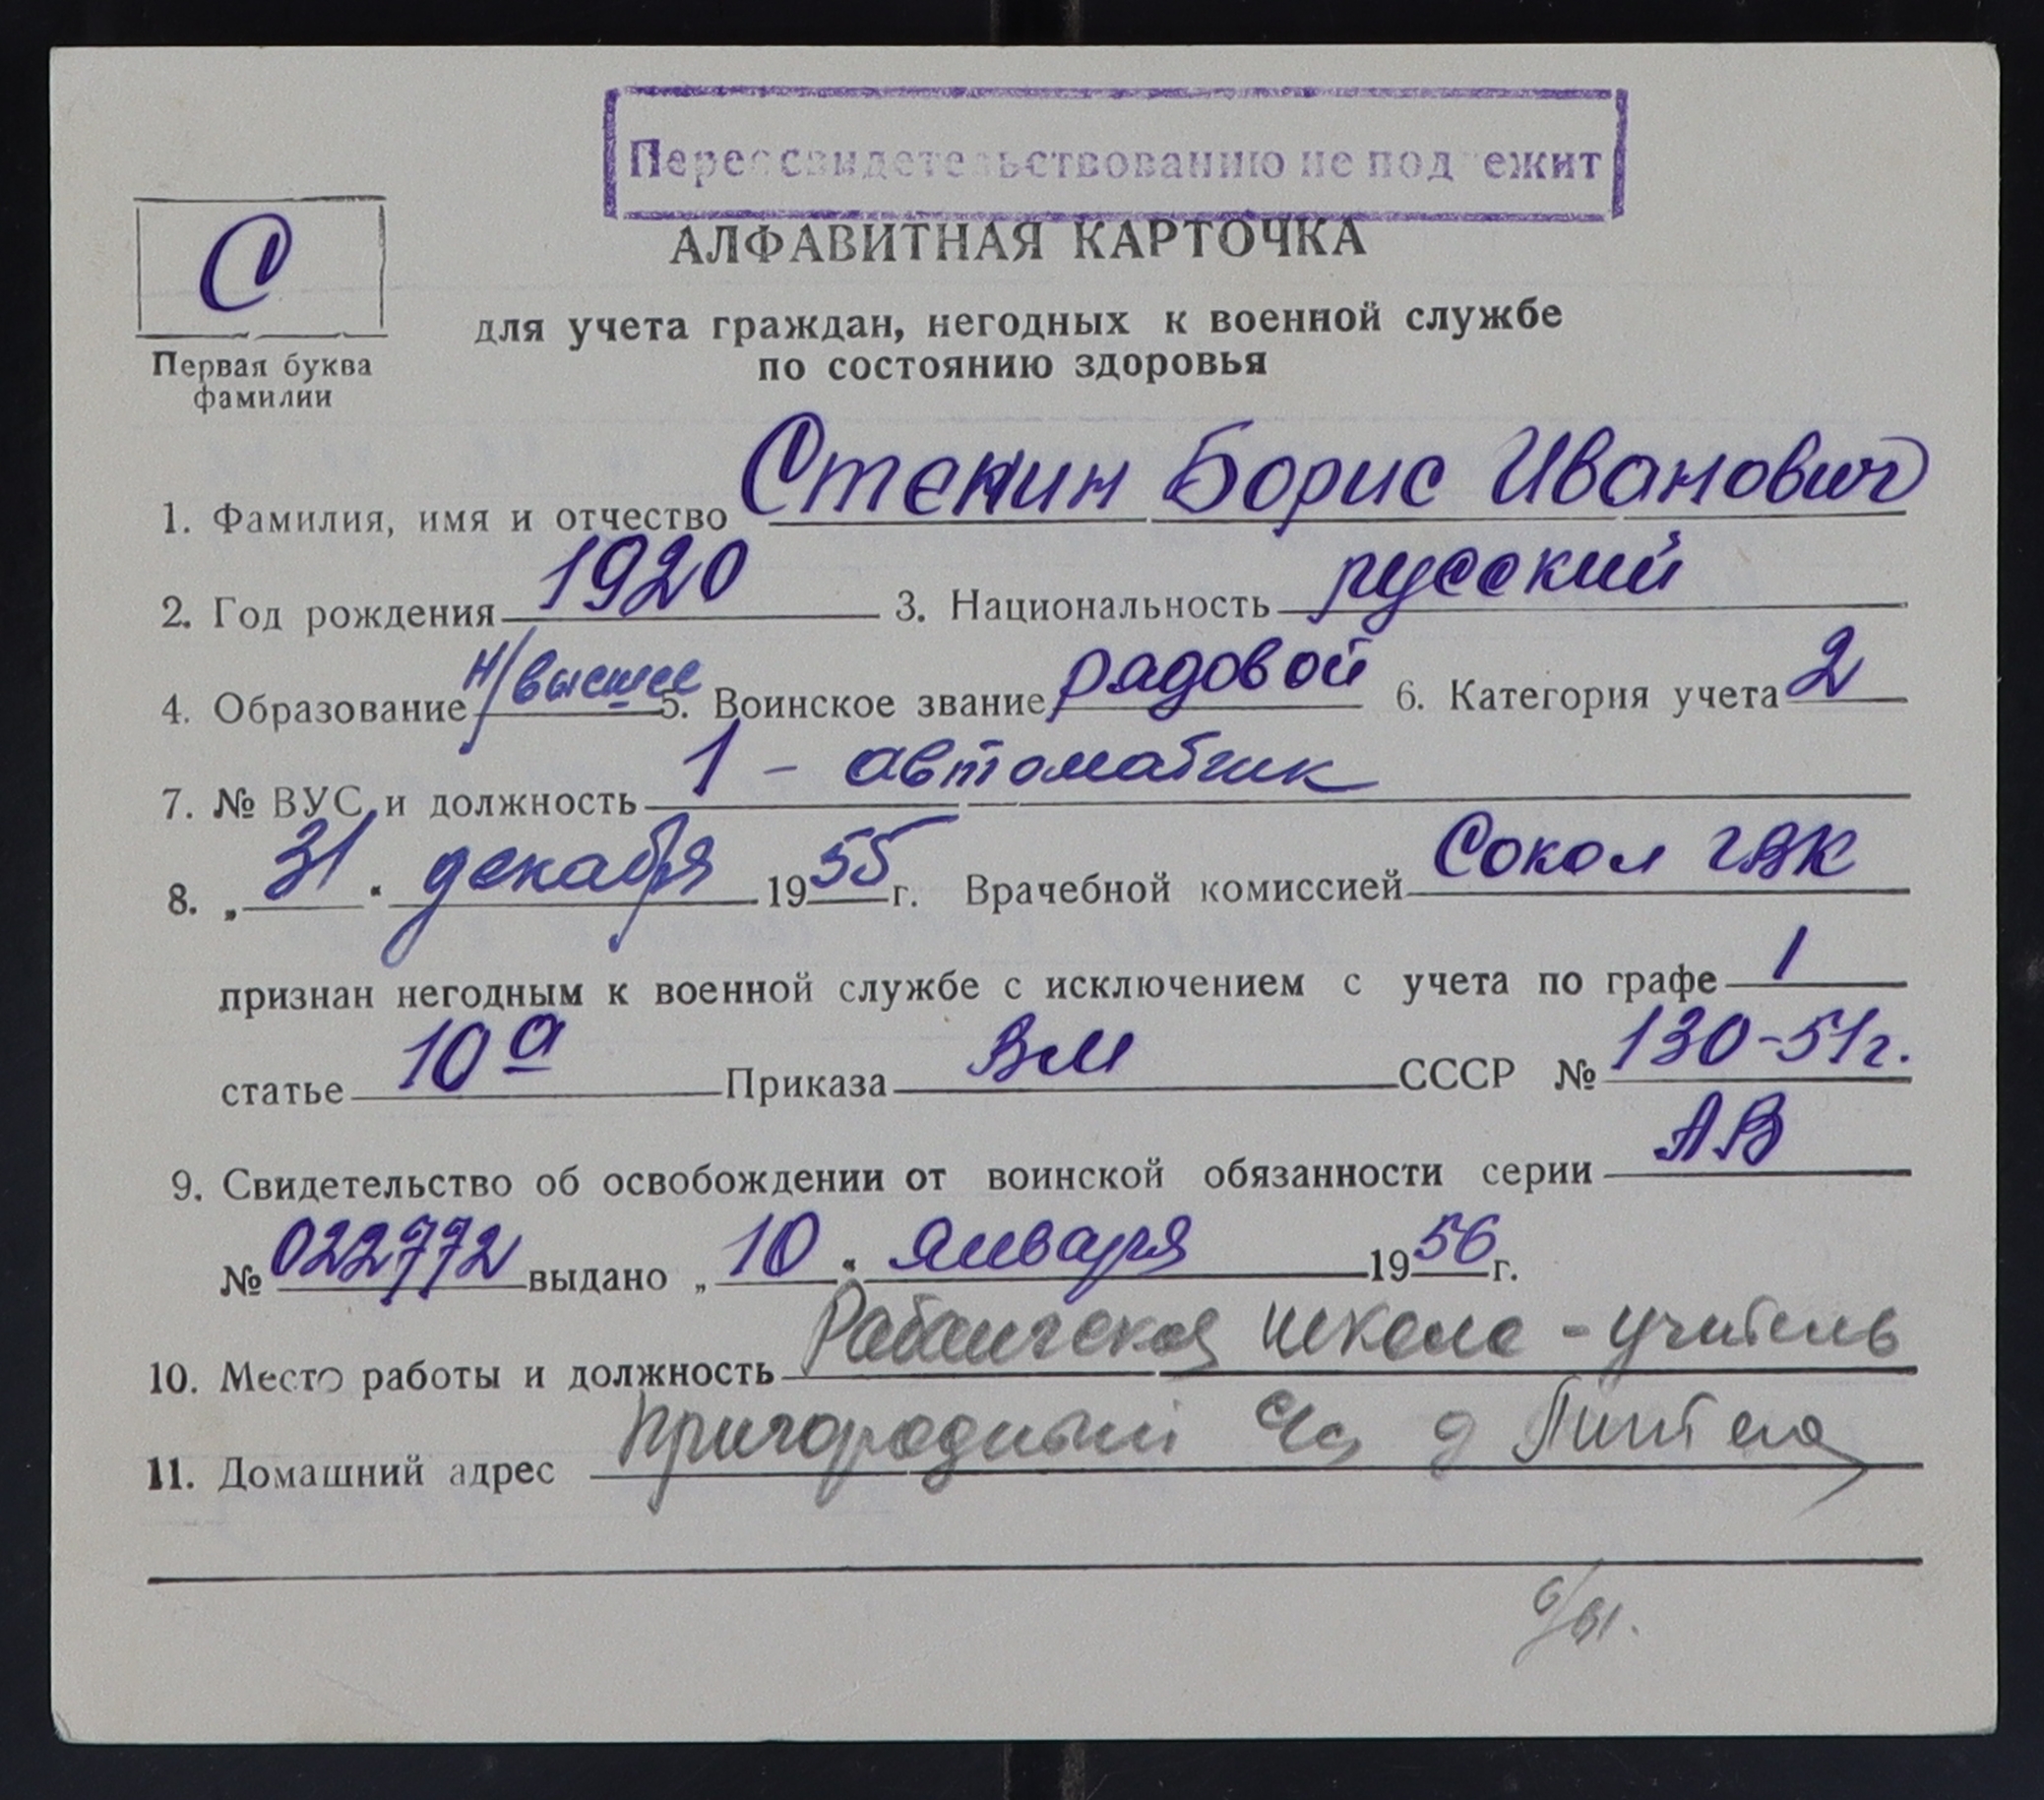 Переосвидетельствованию не подлежит
С
Первая буква
фамилии
АЛФАВИТНАЯ КАРТОЧКА
для учета граждан, негодных к военной службе
по состоянию здоровья
1. Фамилия, имя и отчество Стенин Борис Иванович
2. Год рождения 1920 3. Национальность русский
4. Образование н/высшее 5. Воинское звание рядовой 6. Категория учета 2
7. № ВУС и должность 1 - автоматчик
8. „ 31 “ декабря 1955 г. Врачебной комиссией Сокол ГВК
признан негодным к военной службе с исключением с учета по графе 1
статье 10а Приказа ВМ СССР № 130-51г.
9. Свидетельство об освобождении от воинской обязанности серии АВ
№ 022772 выдано „ 10 “ января 1956 г.
10. Место работы и должность Рабангская школа - учитель
11. Домашний адрес Пригородный с/с д